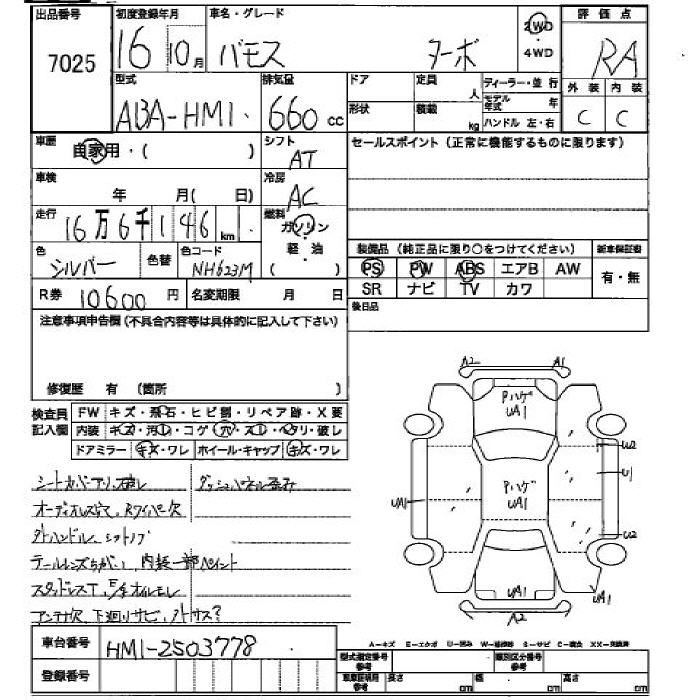 出品番号 初度登録年月 車名・グレード 評価点
7025 16 10月 バモス ターボ 2WD ・ 4WD RA
型式 排気量 ドア 定員 人 ディーラー・並行 外装 内装
ABA-HM1 660cc 形状 積載 kg モデル年式 年 ハンドル 左・右 C C
車歴 自家用・( ) シフト AT セールスポイント(正常に機能するものに限ります)
車検 年 月( 日) 冷房 AC
走行 16万6千146km 燃料 ガソリン・軽油( )
色 シルバー 色替 色コード NH623M 装備品(純正品に限り○をつけてください) 新車保証書
PS PW ABS エアB AW 有・無
R券 10600円 名変期限 月 日 SR ナビ TV カワ
注意事項申告欄(不具合内容等は具体的に記入して下さい) 後日品
修復歴 有(箇所 )
検査員記入欄 FW キズ・飛石・ヒビ割・リペア跡・X要
内装 キズ・汚れ・コゲ・穴・スレ・ヘタリ・破レ
ドアミラー キズ・ワレ ホイール・キャップ キズ・ワレ
A2 A1
Pハゲ UA1
U2
UA1 PハゲUA1 U1
U2
UA1 UA1
A2
シートカバーアリ ダッシュパネル歪み
オーディオレス穴、Rワイパー欠
外ハンドル、シフトノブ
テールレンズちがい、内装一部ペイント
スタッドレスT
アンテナ欠、下廻りサビ
車台番号 HM1-2503778
A-キズ E-エクボ U-凹み W-補修跡 S-サビ C-腐食 XX-交換済
登録番号 型式指定番号参考 類別区分番号参考
車庫証明用参考 長さ cm 幅 cm 高さ cm